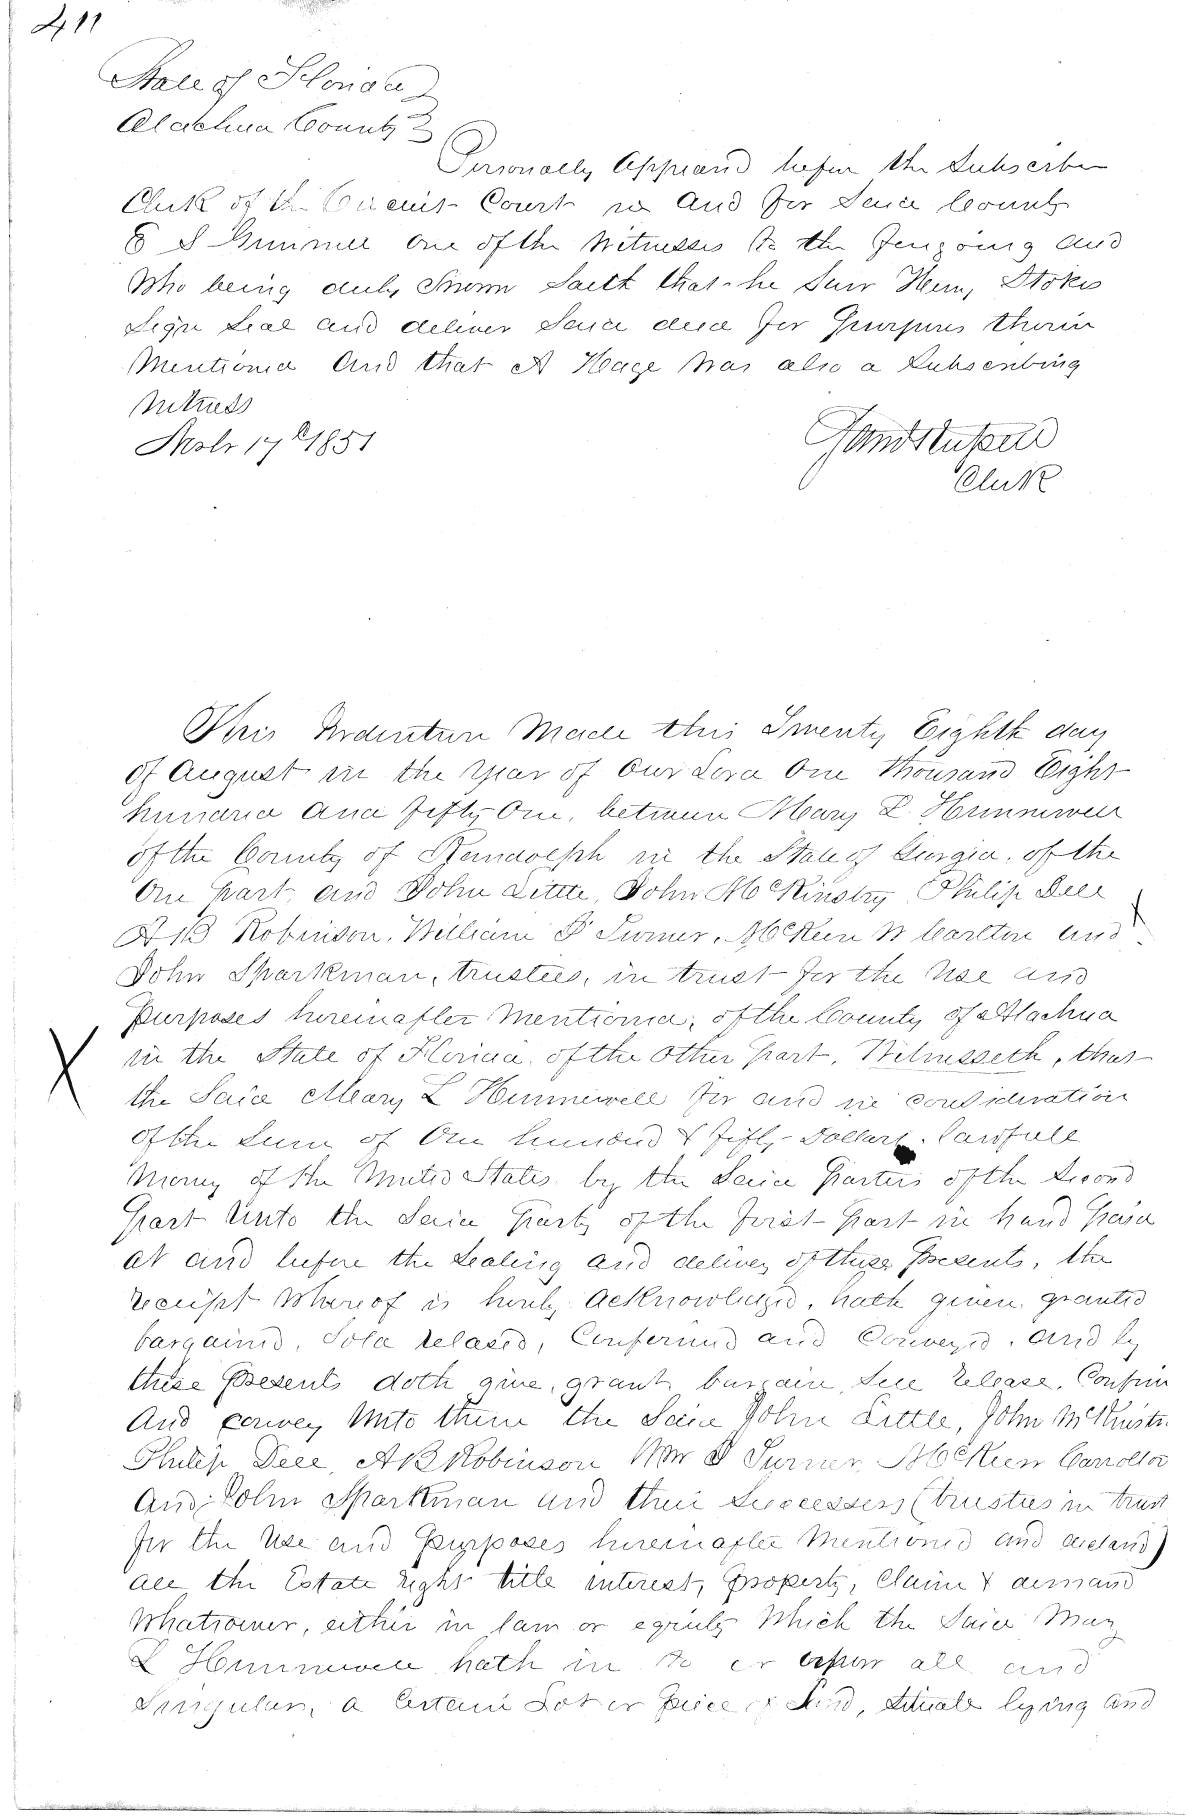 411
State of Florida
Alachua County
Personally Appeared before the Subscriber
Clerk of the Circuit Court in and for Said County
one of the Witnesses to the foregoing and
Who being duly Sworn Saith that he Saw Henry Stokes
Sign Seal and deliver Said deed for Purposes therein
Mentioned And that A Hage was also a Subscribing
Witness
17th 1851
Clerk
This Indenture Made this Twenty Eighth day
of August in the year of Our Lord One Thousand Eight
hundred And fifty One, between Mary L Hunnewell
of the County of Randolph in the State of Georgia, of the
One part, and John Little, John McKinstry Philip Dell
A B Robinson, William I Turner, McKeen W Carlton and
John Sparkman, trustees, in trust for the Use and
Purposes hereinafter Mentioned, of the County of Alachua
in the State of Florida, of the Other part, Witnesseth, that
the Said Mary L Hunnewell for and in consideration
of the Sum of One hundred & fifty Dollars, lawfull
Money of the United States by the Said Parties of the Second
Part Unto the Said Party of the first part in hand Paid
at and before the Sealing and delivery of these Presents, the
receipt Whereof is hereby Acknowledged, hath given, granted
bargained, Sold relased, Confermed and Conveyed, and by
these Presents doth give, grant, bargain, Sell Release, Confirm
And convey Unto them the Said John Little, John McKinstry
Philip Dell, A B Robinson Wm I Turner, McKeen Carrolton
And John Sparkman and their Successors (trusties in trust
for the Use and Purposes hereinafter Mentioned and declard)
all the Estate right title interest, property, Claim & demand
Whatsoever, either in law or equity Which the Said Mary
L Hunnewell hath in to or upon all and
Singular, a Certain Lot or Piece of Land, Situate lying and